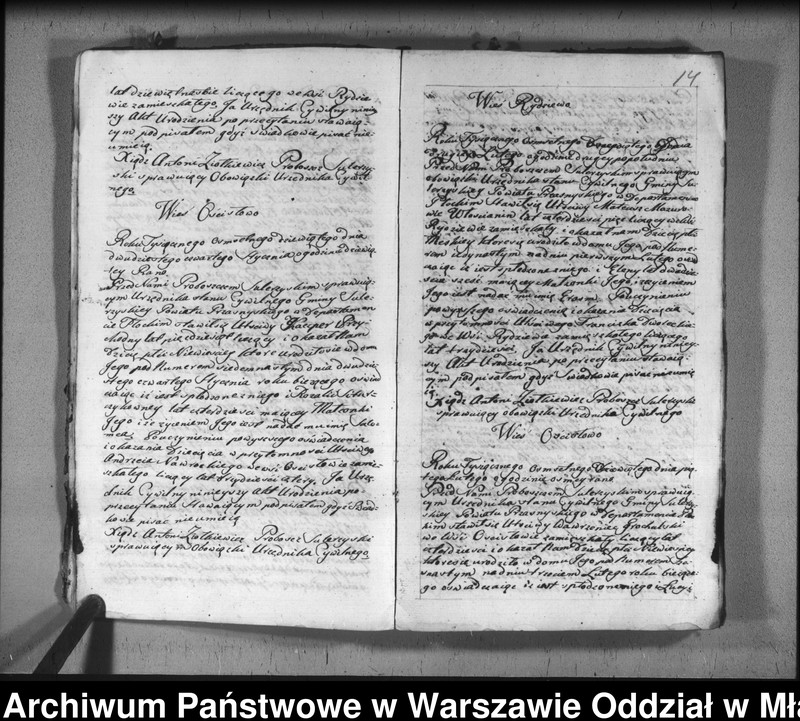 lat dziewiętnaście liczącego we Wsi Rydze
wie zamieszkałego. Ja Urzędnik Cywilny ninie
szy Akt Urodzenia po przeczytaniu stawaią
cym podpisałem gdyż świadkowie pisać nie
umieią.
Xiądz Antoni Ziołkiewicz Proboszcz Sulerzy
ski sprawuiący Obowiązki Urzędnika Cywil
nego
Wieś Ościsłowo
Roku Tysiącznego Osmsetnego dziewiątego dnia
dwudziestego czwartego Stycznia o godzinie dziewią
tey Rano.
Przed Nami Proboszczem Sulerzyskim sprawuią
cym Urzędnika stanu Cywilnego Gminy Sule
rzyskiey Powiatu Przasnyskiego w Departamen
cie Płockim stawił się Uczciwy Kacper Przy
chodny lat pięćdziesiąt liczący i okazał Nam
Dziecię płci Niewieściey które urodziło się w dom
Jego pod Numerem siedemnastym dnia dwudzie
stego czwartego Stycznia roku bieżącego oświad
czaiąc iż iest spłodzone z niego i Rozalii
lat czterdzieści maiącey Małżonki
Jego i że życzeniem Jego iest nadać mu imię Salo
mea. Po uczynieniu powyższego oświadczenia
i okazania Dziecięcia w przytomności Uczciwego
Andrzeia Nawrockiego we Wsi Ościsłowie zamie
szkałego liczący lat trzydzieści cztery. Ja Urzę
dnik Cywilny ninieyszy Akt Urodzenia po
przeczytaniu stawaiącym podpisałem gdyż Świad
kowie pisać nie umieią
Xiądz Antoni Ziołkiewicz Proboszcz Sulerzyski
sprawuiący Obowiązki Urzędnika Cywilnego
14.
Wieś Rydzewo
Roku Tysiącznego Osmsetnego Dziewiątego Dnia
Lutego o godzinie drugiey po południu
Przed Nami Proboszczem Sulerzyskim sprawuiącym
obowiązki Urzędnika stanu Cywilnego Gminy Su
lerzyskiey Powiatu Przasnyskiego w Departamencie
Płockim stawił się Uczciwy Mateusz
Włościanin lat czterdzieści pięć liczący we Wsi
Rydzewie zamieszkały i okazał nam Dziecię płci
Męskiey które się urodziło w domu Jego pod Nume
rem iedynastym na dniu pierwszym Lutego oświ
adczaiąc iż iest spłodzone z niego i Heleny lat dwadzie
ścia sześć maiącey Małżonki Jego, i życzeniem
Jego iest nadać mu imię Erazm. Po uczynieniu
powyższego oświadczenia i okazania Dziecięcia
w przytomności Uczciwego Franciszka
we Wsi Rydzewie zamieszkałego liczącego
lat trzydzieści. Ja Urzędnik Cywilny niniey
szy Akt Urodzenia po przeczytaniu stawaią
cym podpisałem gdyż świadkowie pisać nie umie
ią.
Xiądz Antoni Ziołkiewicz Proboszcz Sulerzyski
sprawuiący obowiązki Urzędnika Cywilnego
Wieś Ościsłowo
Roku Tysiącznego Osmsetnego Dziewiątego dnia pią
tego Lutego o godzinie osmey rano
Przed Nami Proboszczem Sulerzyskim sprawuią
cym Urzędnika stanu Cywilnego Gminy Sulerzy
skiey Powiatu Przasnyskiego w Departamencie Płoc
kim stawił się Uczciwy Wawrzeniec Grochulski
we Wsi Ościsłowie zamieszkały liczący lat
czterdzieści i okazał Nam Dziecię płci Niewieściey
które się urodziło w domu Jego pod Numerem
na dniu trzecim Lutego roku bieżące
go oświadczaiąc iż iest spłodzone z niego i Łucyi
Archiwum Państwowe w Warszawie Oddział w Mła